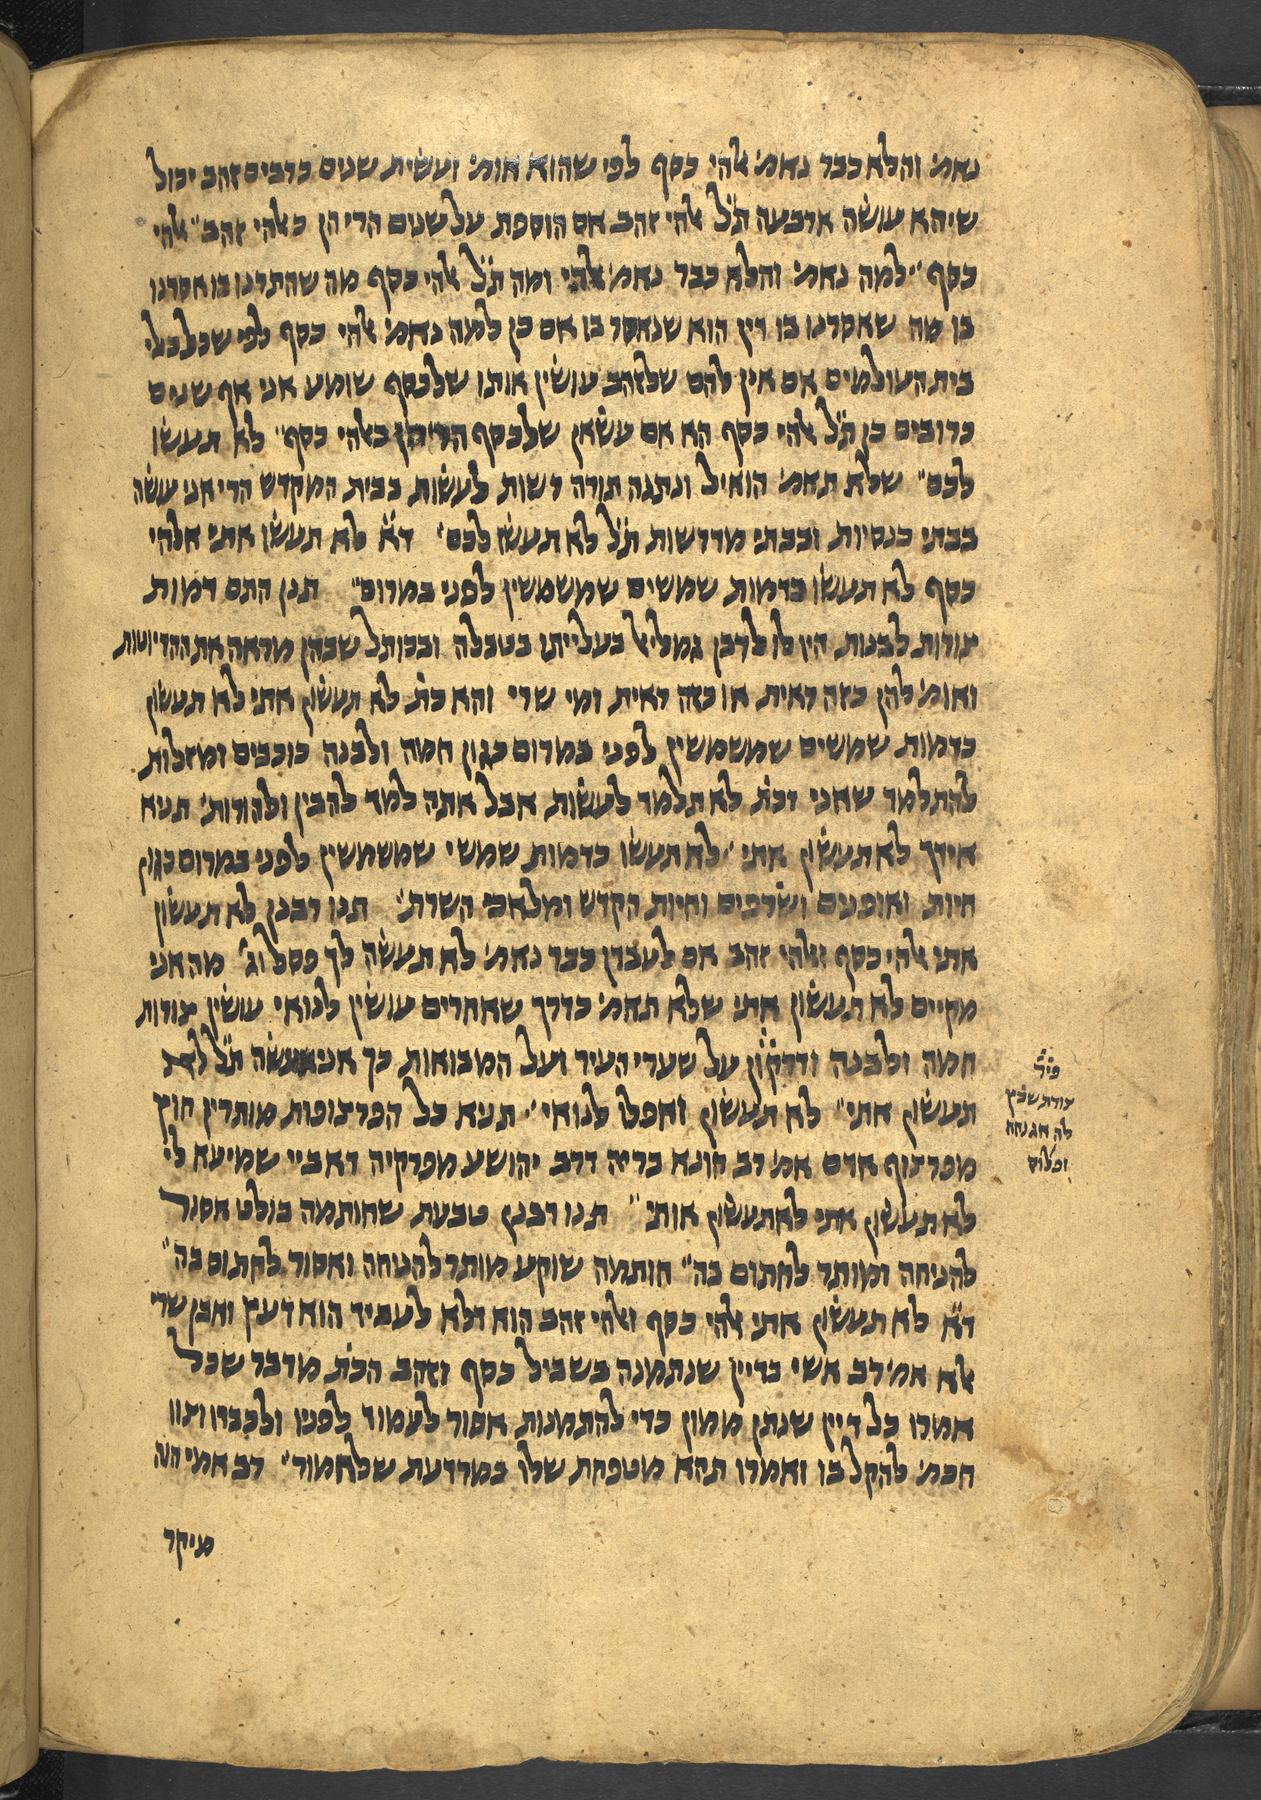 נאמ׳ והלא כבר נאמ׳ אלהי כסף לפי שהוא אומ׳ ועשית שנים כרבים זהב יכול
שיהא עושה ארבעה ת״ל אלהי זהב אם הוספת על שנים הרי הן כאלהי זהב״ אלהי
כסף ׳ למה נאמ׳ והלא כבר נאמ׳ אלהי ומה ת״ל אלהי כסף מה שהתרנו בו אסרנו
בו מה שאסרנו בו דין הוא שנאסר בו אם כן למה נאמ׳ אלהי כסף לפי שבל כלי
בית העולמים אם אין להם שלזהב עושין אותו שלכסף שומע אני אף שנים
כרובים כן ת״ל אלהי כסף הא אם עשאן שלכסף הרי הן כאלהי כסף״ לא תעשו
לכם״ שלא תאמ׳ הואיל ונתנה תורה רשות לעשות בבית המקדש הרי אני עשה
בבתי כנסיות ובבתי מדרשות ת״ל לא תעשו לכם׳ ד״א לא תעשון אתי אלהי
כסף לא תעשו כדמות שמשים שמשמשין לפני במרום״ תנן התם דמות
צורות לבנות היו לו לרבן גמליאל בעלייתו בטבלה ובכותל שבהן מראה את ההדיוטות
ואומ׳ להן כזה ראית או כזה ראית ומי שרי והא כת׳ לא תעשון אתי לא תעשון
כדמות שמשים שמשמשין לפני במרום כגון חמה ולבנה כוכבים ומזלות
להתלמד שאני דכת׳ לא תלמד לעשות אבל אתה למד להבין ולהורות׳ תניא
אידך לא תעשון אתי ׳ לא תעשו כדמות שמשי שמשמשין לפני במרום כגון
חיות ואופנים ושרפים וחיות הקדש ומלאכי השרת׳ תנו רבנן לא תעשון
אתי אלהי כסף ואלהי זהב אם לעבדן כבר נאמ׳ לא תעשה לך פסל וג׳ מה אני
מקיים לא תעשון אתי שלא תאמ׳ כדרך שאחרים עושין לנואי עושין צורות
חמה ולבנה ודרקון על שערי העיר ועל המבואות כך אני אעשה ת״ל לא
תעשון אתי״ לא תעשון ואפלו לנואי ׳ תניא כל הפרצופות מותרין חוץ
מפרצוף אדם אמ׳ רב הונא בריה דרב יהושע מפרקיה דאביי שמיעא לי
לא תעשון אתי לא תעשון אותי ״ תנו רבנן טבעת שחותמה בולט אסור
להניחה ומותר לחתום בה״ חותמה שוקע מותר להניחה ואסור לחתום בה״
ד״א לא תעשון אתי אלהי כסף ואלהי זהב הוא דלא לעביד הוא דעץ ואבן שרי
אלא אמ׳ רב אשי בדיין שנתמנה בשביל כסף וזהב הכת׳ מדבר שכל
אמרו כל דיין שנתן ממון כדי להתמנות אסור לעמוד לפניו ולכבדו וצוו
חכמ׳ להקל בו ואמרו תהא מטפחת שלו כמרדעת שלחמור׳ רב אמי הוה
מיקר
פיר׳
צורת שרץ
לה אגנחה